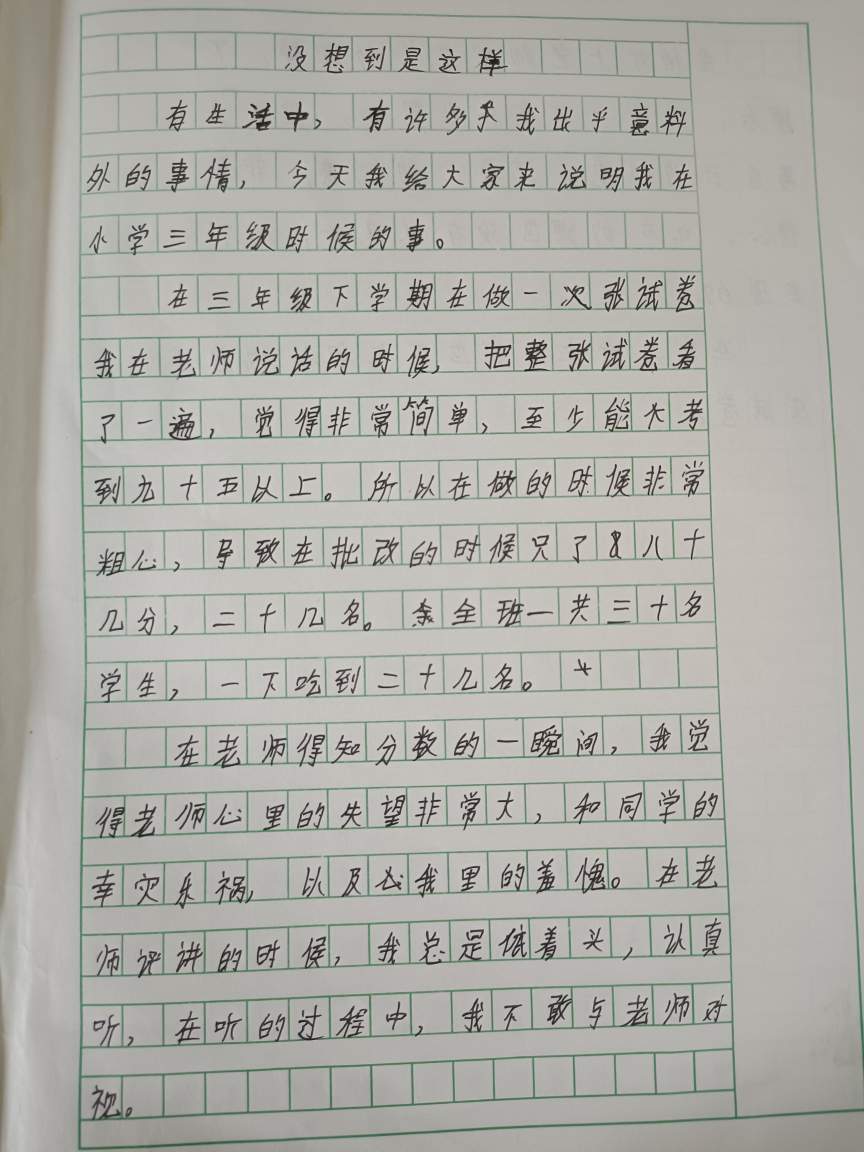 没想到是这样
有生活中，有许多我出乎意料
外的事情，今天我给大家来说明我在
小学三年级时候的事。
在三年级下学期在做一次张试卷
我在老师说话的时候，把整张试卷看
了一遍，觉得非常简单，至少能大考
到九十五以上。所以在做的时候非常
粗心，导致在批改的时候只了八十
几分，二十几名。全班一共三十名
学生，一下吃到二十几名。
在老师得知分数的一瞬间，我觉
得老师心里的失望非常大，和同学的
幸灾乐祸，以及我里的羞愧。在老
师评讲的时候，我总是低着头，认真
听，在听的过程中，我不敢与老师对
视。